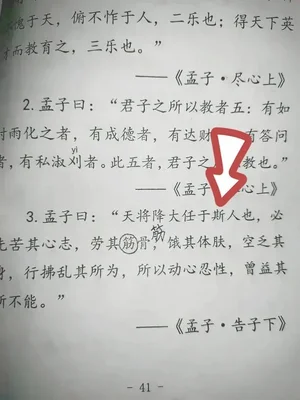 愧于天，俯不怍于人，二乐也；得天下英
才而教育之，三乐也。”
——《孟子·尽心上》
2.孟子曰：“君子之所以教者五：有如
时雨化之者，有成德者，有达财 有答问
yì
者，有私淑刈者。此五者，君子之 教也。”
——《孟子· 心上》
3.孟子曰：“天将降大任于斯人也，必
筋
先苦其心志，劳其筋骨，饿其体肤，空乏其
身，行拂乱其所为，所以动心忍性，曾益其
所不能。”
——《孟子·告子下》
- 41 -